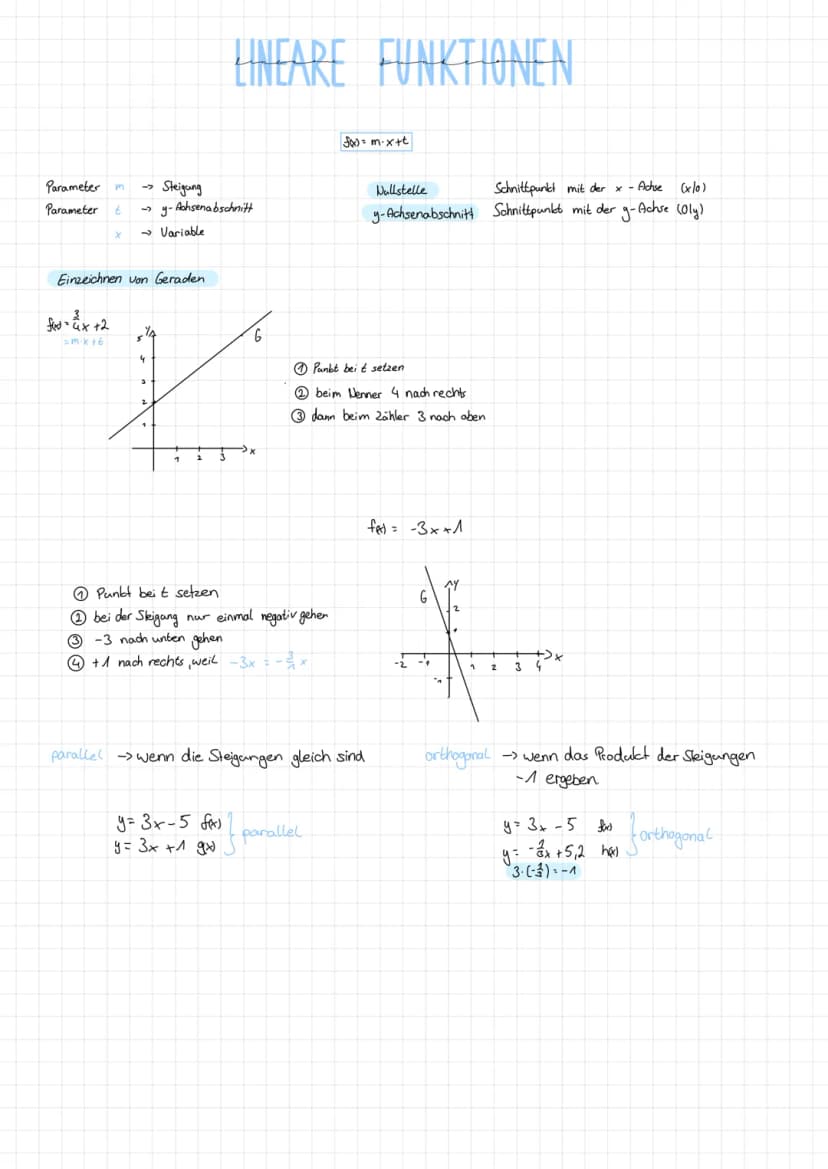 LINEARE FUNKTIONEN
f(x) = m·x+t
Parameter m → Steigung
Parameter t → y-Achsenabschnitt
x → Variable
Nullstelle Schnittpunkt mit der x-Achse (x|0)
y-Achsenabschnitt Schnittpunkt mit der y-Achse (0|y)
Einzeichnen von Geraden
f(x) = 3/4x +2
= m·x+t
5 y
4
3
2
1
1 2 3 x
G
① Punkt bei t setzen
② beim Nenner 4 nach rechts
③ dann beim Zähler 3 nach oben
f(x) = -3x+1
① Punkt bei t setzen
② bei der Steigung nur einmal negativ gehen
③ -3 nach unten gehen
④ +1 nach rechts, weil -3x = -3/1 x
G y
2
1
-2 -1 1 2 3 4 x
-1
parallel → wenn die Steigungen gleich sind
y = 3x-5 f(x)
y = 3x +1 g(x)
parallel
orthogonal → wenn das Produkt der Steigungen
-1 ergeben
y = 3x -5 f(x)
y = -1/3x +5,2 h(x)
orthogonal
3·(-1/3) = -1